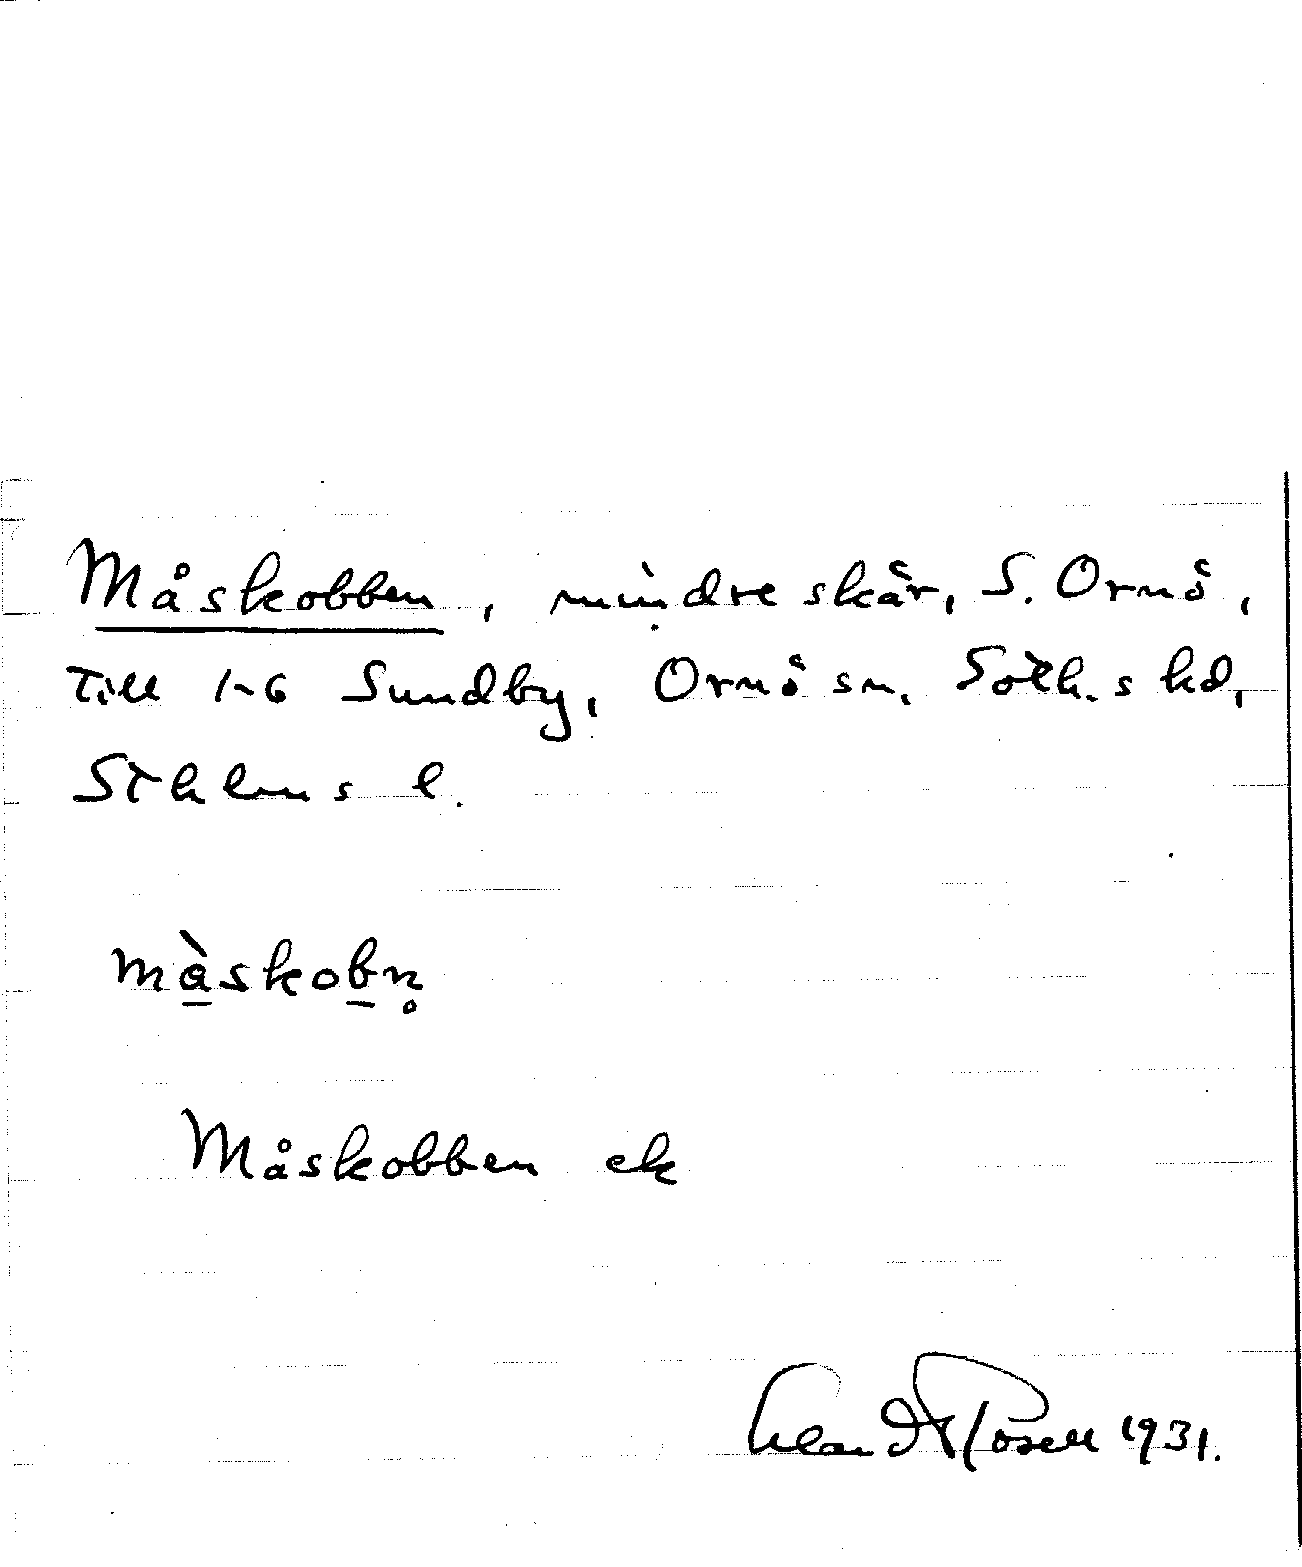 Måskobben, mindre skär, S. Ornö,
till 1-6 Sundby, Ornö sn. Soth.s hd,
Sthlms l.
mà̱skoḇn̥
Måskobben ek
1931.